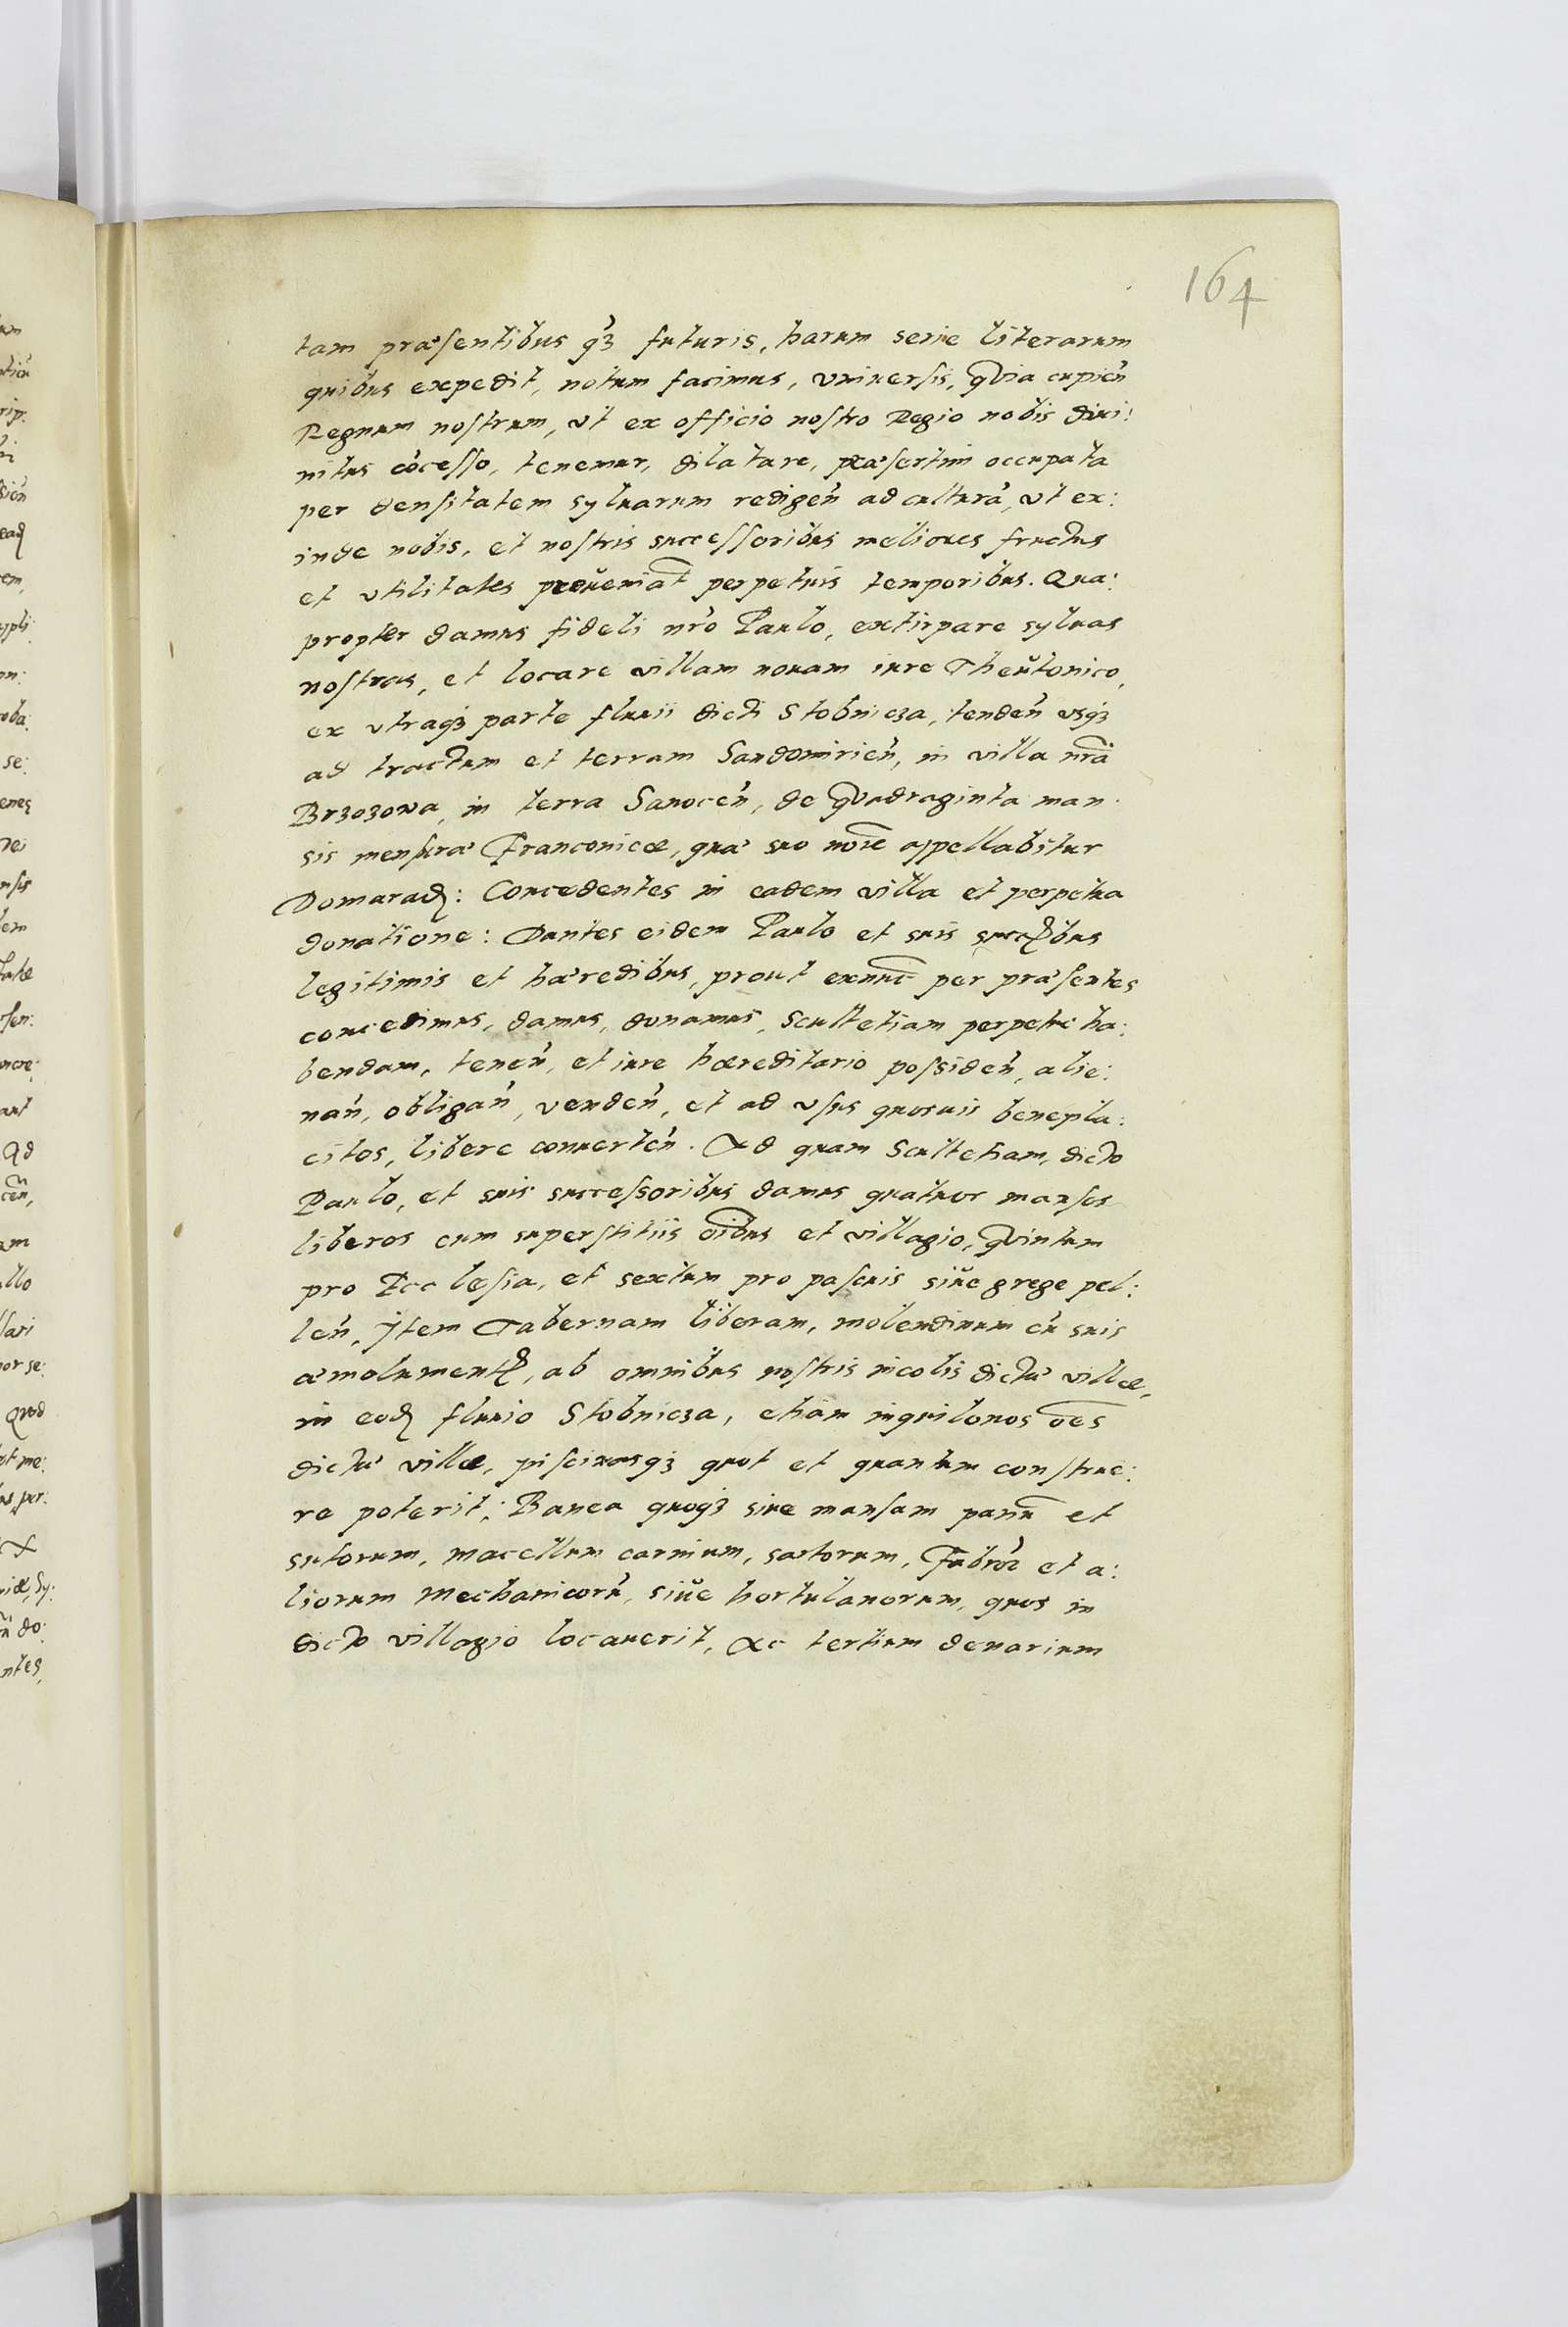 164
tam præsentibus q́ꝫ futuris, harum serie literarum
quibus expedit, notum facimus, vniuersis, qvia cupień
Regnum nostrum, vt ex officio nostro Regio nobis diui:
nitus cócesso, tenemur, dilatare, præsertim occupata
per densitatem syluarum redigeń ad culturá, vt ex:
inde nobis, et nostris successoribus meliores fructus
et vtilitates proŭeniāt perpetuis temporibus. Qua:
propter damus fideli nŕo Paulo, extirpare syluas
nostras, et locare villam nouam iure Theŭtonico,
ex vtraqꝫ parte fluuii dicti Stobnicza, tendeń vsqꝫ
ad tractum et terram Sandomirień, in villa nr̄a
Brzozowa, in terra Sanoceń, de Qvadraginta man:
sis mensuræ Franconicæ, quæ suo noīe appellabitur
Domaradȝ: Concedentes in eadem villa et perpetua
donatione: Dantes eidem Paulo et suis
legitimis et hæredibus, prout exnūc per præsentes
concedimus, damus, donamus, Scultetiam perpetue ha:
bendam, teneń, et iure hæreditario possideń, alie:
nań, obligań, vendeń, et ad vsus quosuis benepla:
citos, libere conuerteń. Ad quam Scultetiam, dicto
Paulo, et suis successoribus damus quatuor mansos
liberos cum superstitiis oībus et villagio, Qvintum
pro Ecclesia, et sextum pro pascuis siŭe grege pel:
leń, Jtem Tabernam liberam, molendinum cú suis
æmolumentȩ, ab omnibus nostris incolis dictæ villæ,
in eodȝ fluuio Stobnicza, etiam inquilonos oēs
dictæ villæ, piscinasqꝫ quot et quantum construe:
re poterit; Banca quoqꝫ siue mansam panū et
sutorum, macellum carnium, sartorum, Fabroꝝ et a:
liorum Mechanicorú, siŭe hortulanorum, quos in
dicto villagio locauerit, Ac tertium denarium